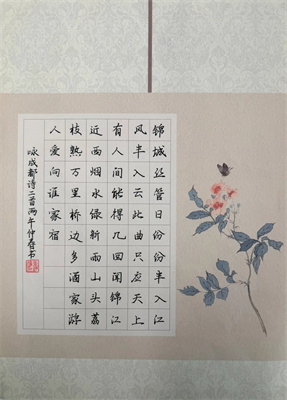 錦城丝管日纷纷半入江
风半入云此曲只应天上
有人间能得几回闻錦江
近西烟水绿新雨山头荔
枝熟万里桥边多酒家游
人爱向谁家宿
咏成都诗二首丙午仲春书